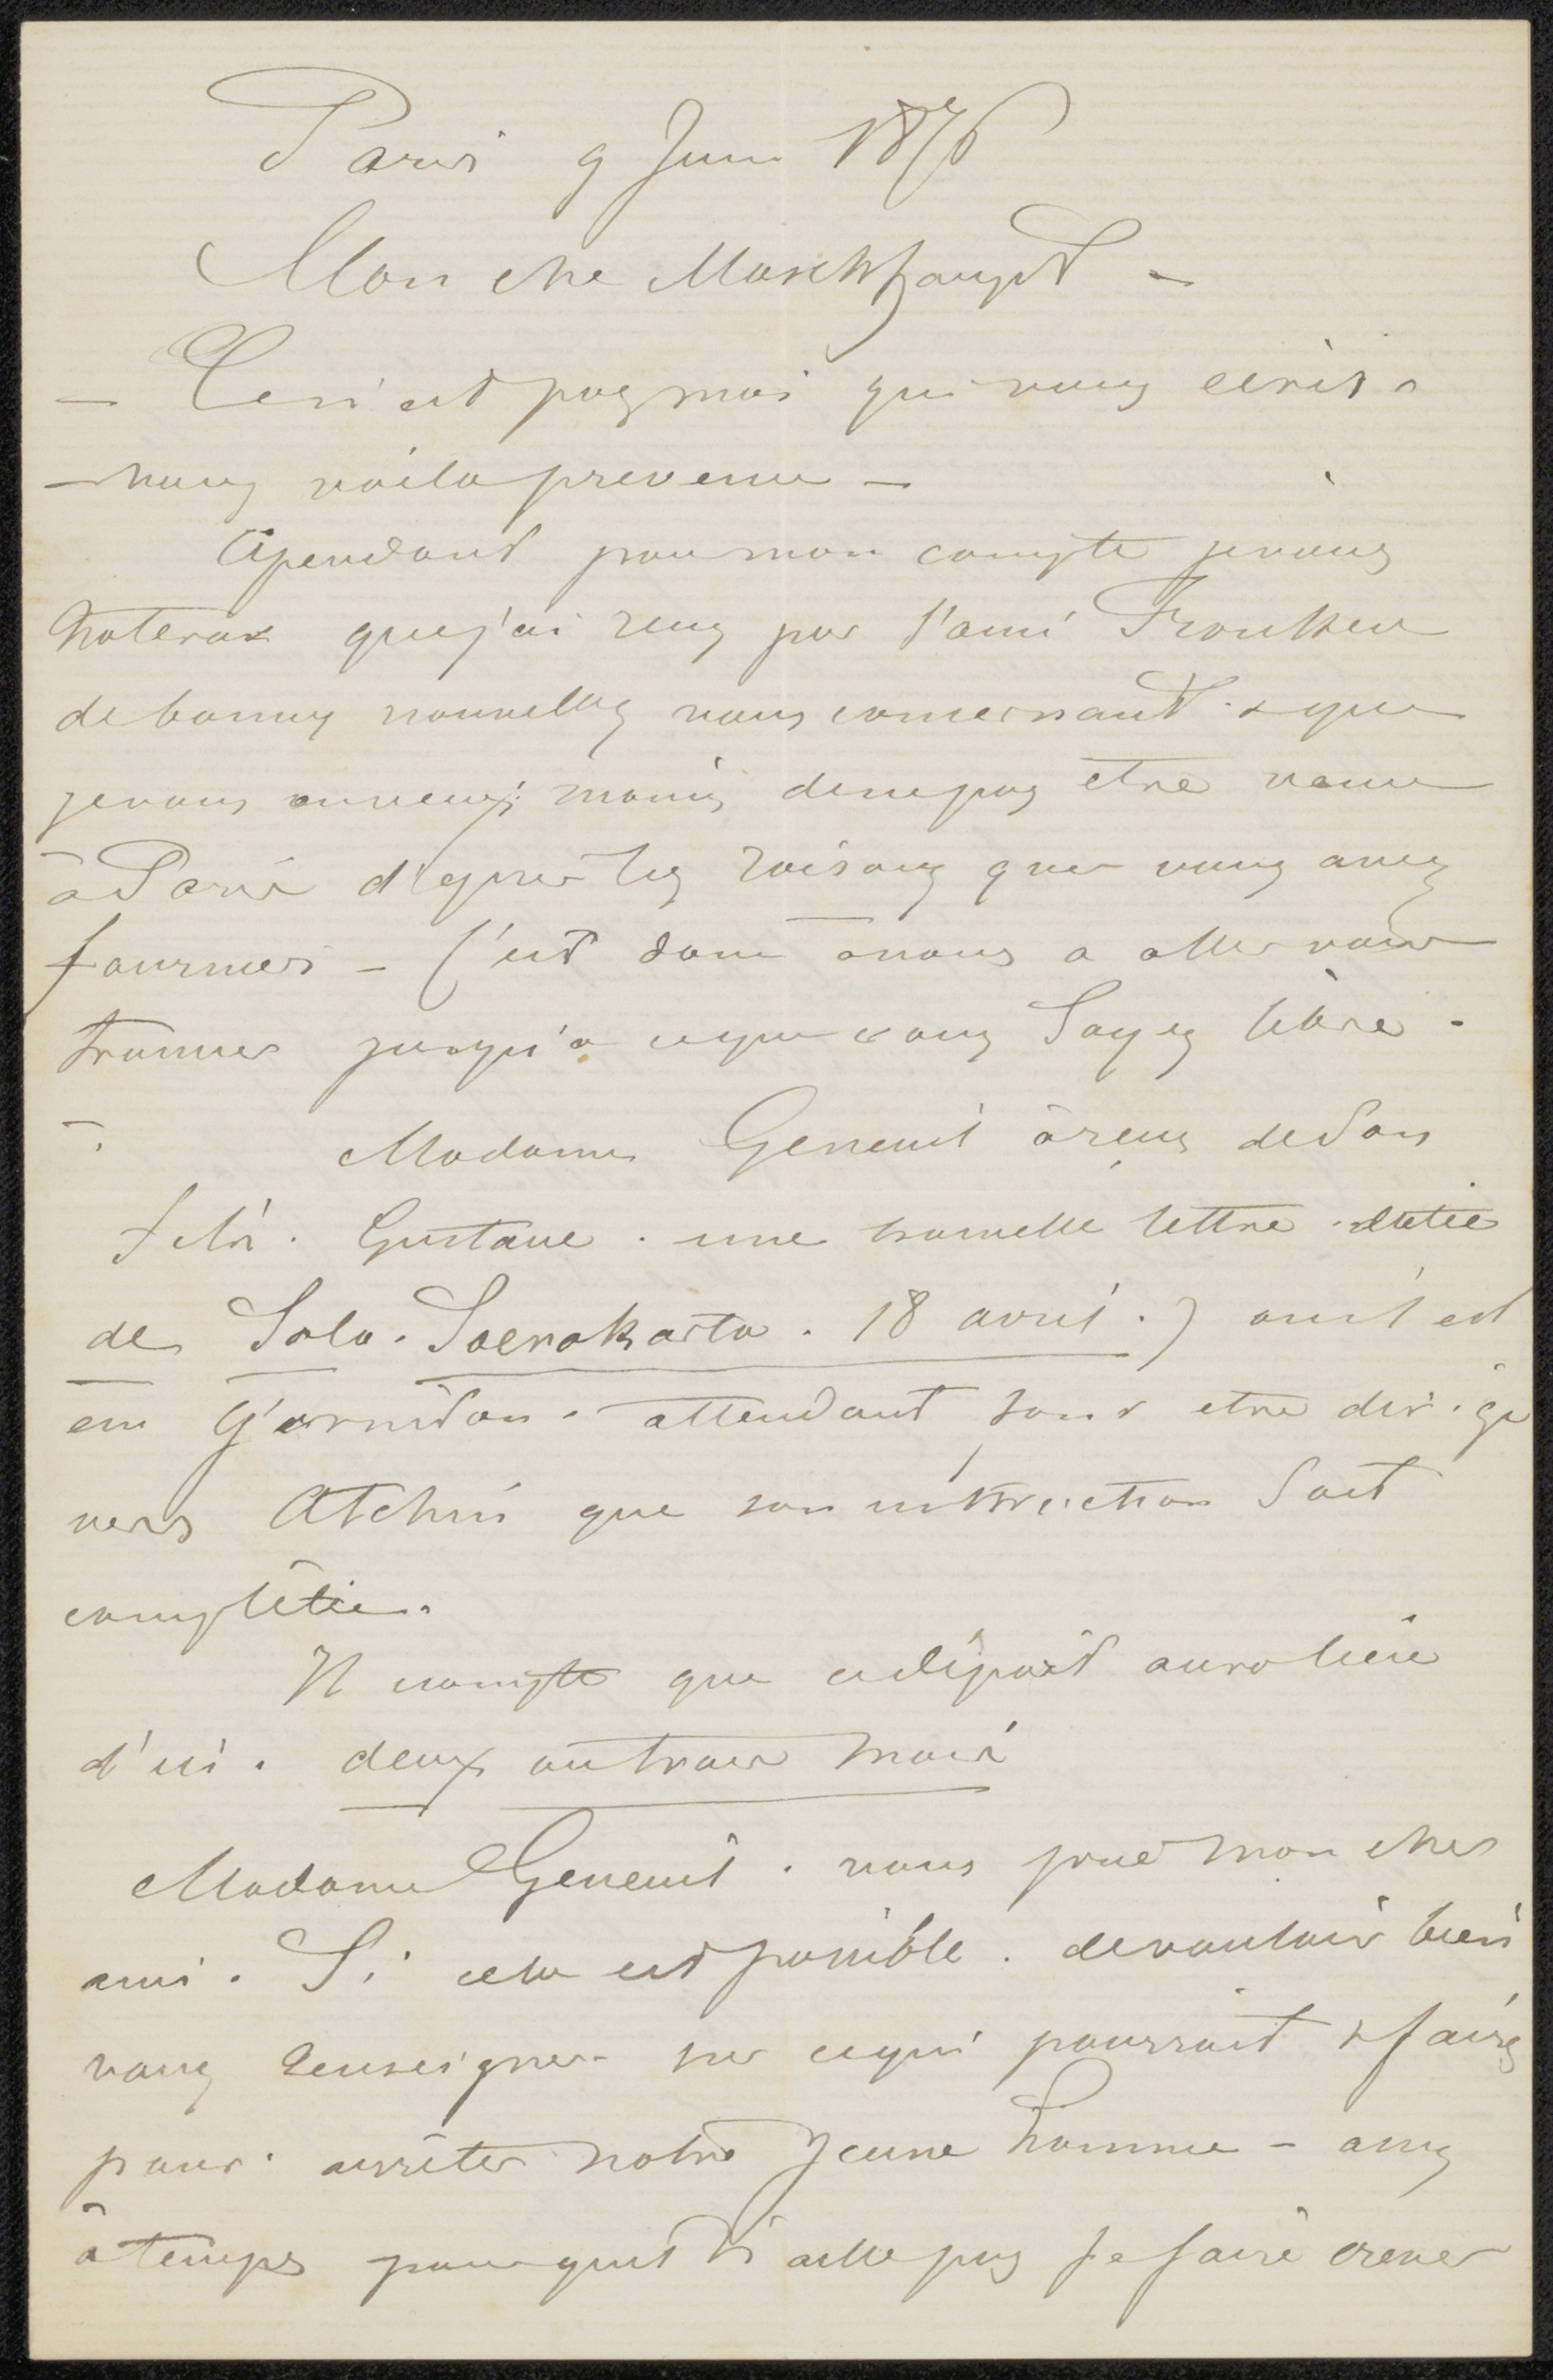 Paris 9 Juin 1876
Mon cher Moschhaupt -
- Ce n'est pas moi qui vous écris.
- vous voila prevenu -
Cependant pour mon compte je vous
noterai que j'ai reçu par l'ami Franken
de bonnes nouvelles vous concernant. & que
je vous en veux moins de ne pas etre venu
à Paris d'après les raisons que vous avez
fournies - C'est donc à nous a aller vous
trouver jusqu'à ce que vous soyez libre.
Madame Geneuil à reçu de son
fils. Gustave. une nouvelle lettre. datée
de Solo. Soerokarta. 18 avril.) ou il est
en garnison. attendant pour etre dirigé
vers Atchin que son instruction soit
complétée.
Il compte que ce départ aura lieu
d'ici. deux ou trois mois
Madame Geneuil. vous prie mon cher
ami. Si cela est possible. de vouloir bien
vous renseigner sur ce qui pourrait se faire
pour arrêter notre jeune homme - assez
à temps pour qu'il n'aille pas se faire crever